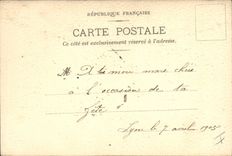 RÉPUBLIQUE FRANÇAISE
CARTE POSTALE
Ce côté est exclusivement réservé à l'adresse.
mon cher
à l'occasion de la
fête
Lyon le 7 avril 1905